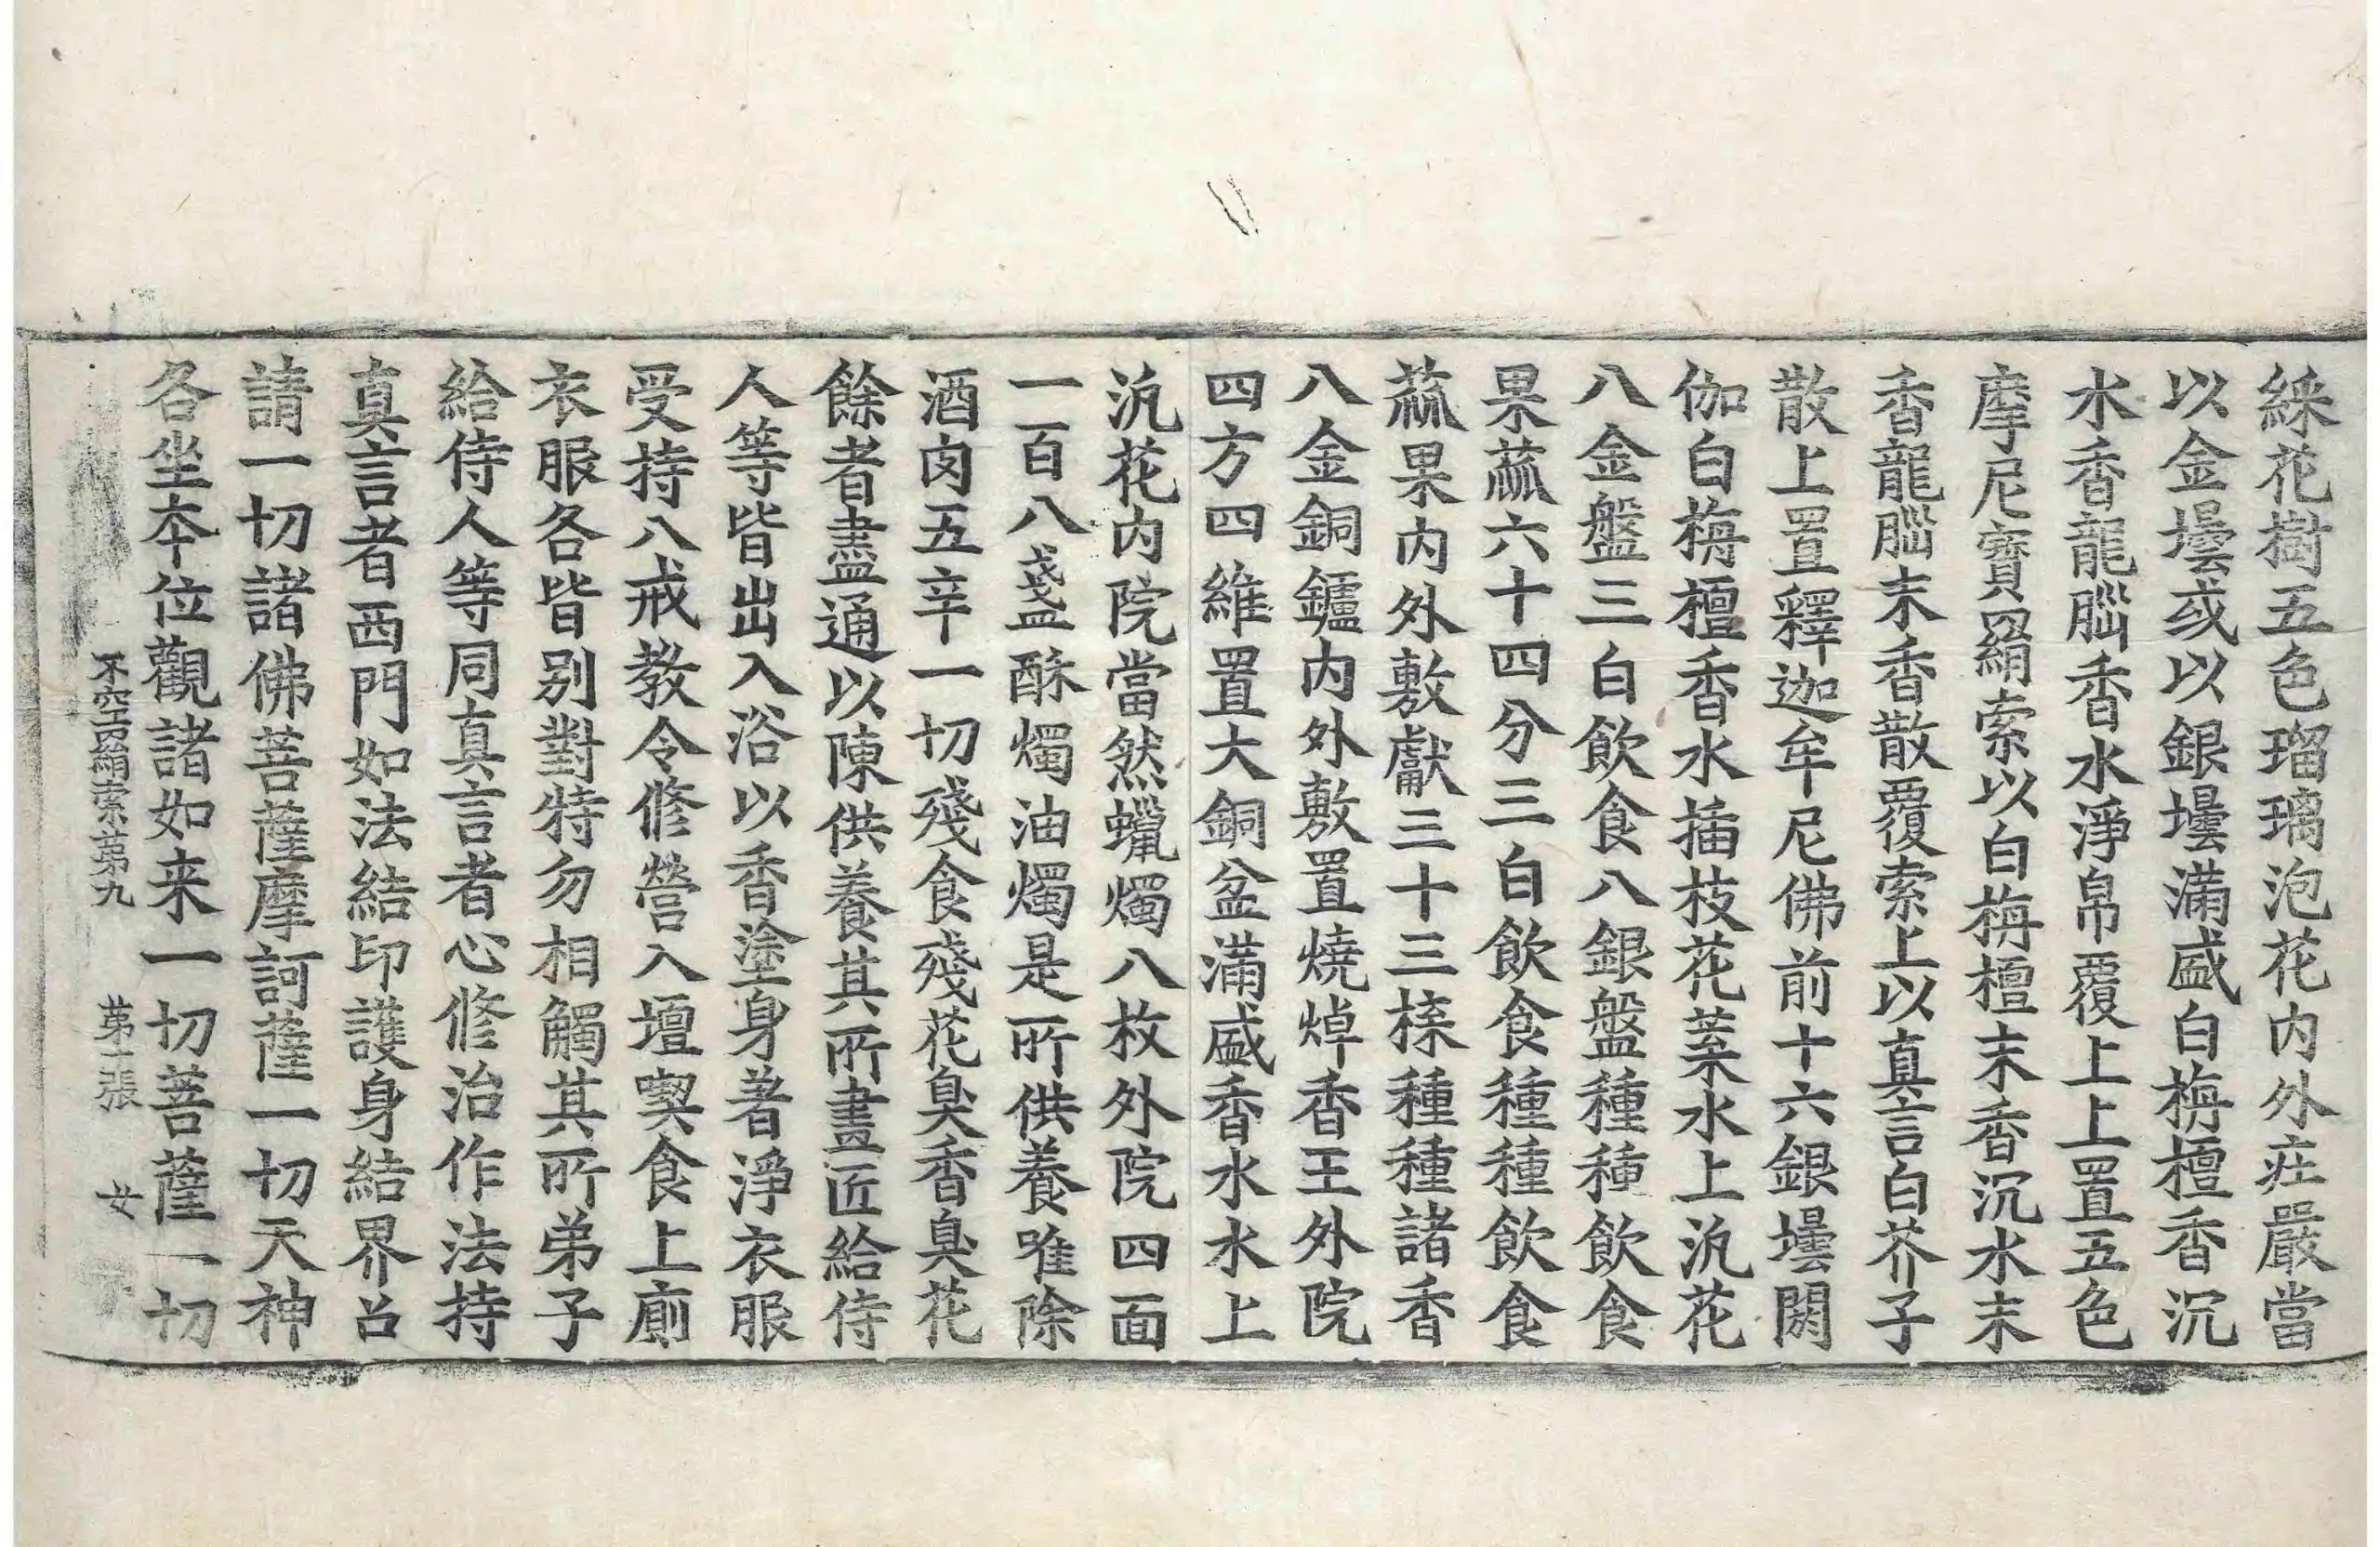 綵花樹五色瑠璃泡花内外疘嚴當
以金壜或以銀壜滿盛白栴檀香沉
水香龍腦香水淨帛覆上上置五色
摩尼寶羂索以白栴檀末香沉水末
香龍腦末香散覆索上以真言白芥子
散上置釋迦牟尼佛前十六銀壜閼
伽白栴檀香水插枝花葉水上汎花
八金盤三白飲食八銀盤種種飲食
果蓏六十四分三白飲食種種飲食
蓏果内外敷獻三十三㨾種種諸香
八金銅鑪内外敷置燒焯香王外院
四方四維置大銅盆滿盛香水水上
汎花内院當然蠟燭八枚外院四面
一百八盞酥燭油燭是所供養唯除
酒肉五辛一切殘食殘花臭香臭花
餘者盡通以陳供養其所畫匠給侍
人等皆出入浴以香塗身著淨衣服
受持八戒教令修營入壇喫食上廁
衣服各皆别對特勿相觸其所弟子
給侍人等同真言者心修治作法持
真言者西門如法結印護身結界召
請一切諸佛菩薩摩訶薩一切天神
各坐本位觀諸如来一切菩薩一切
不空羂索苐九 苐二張 女